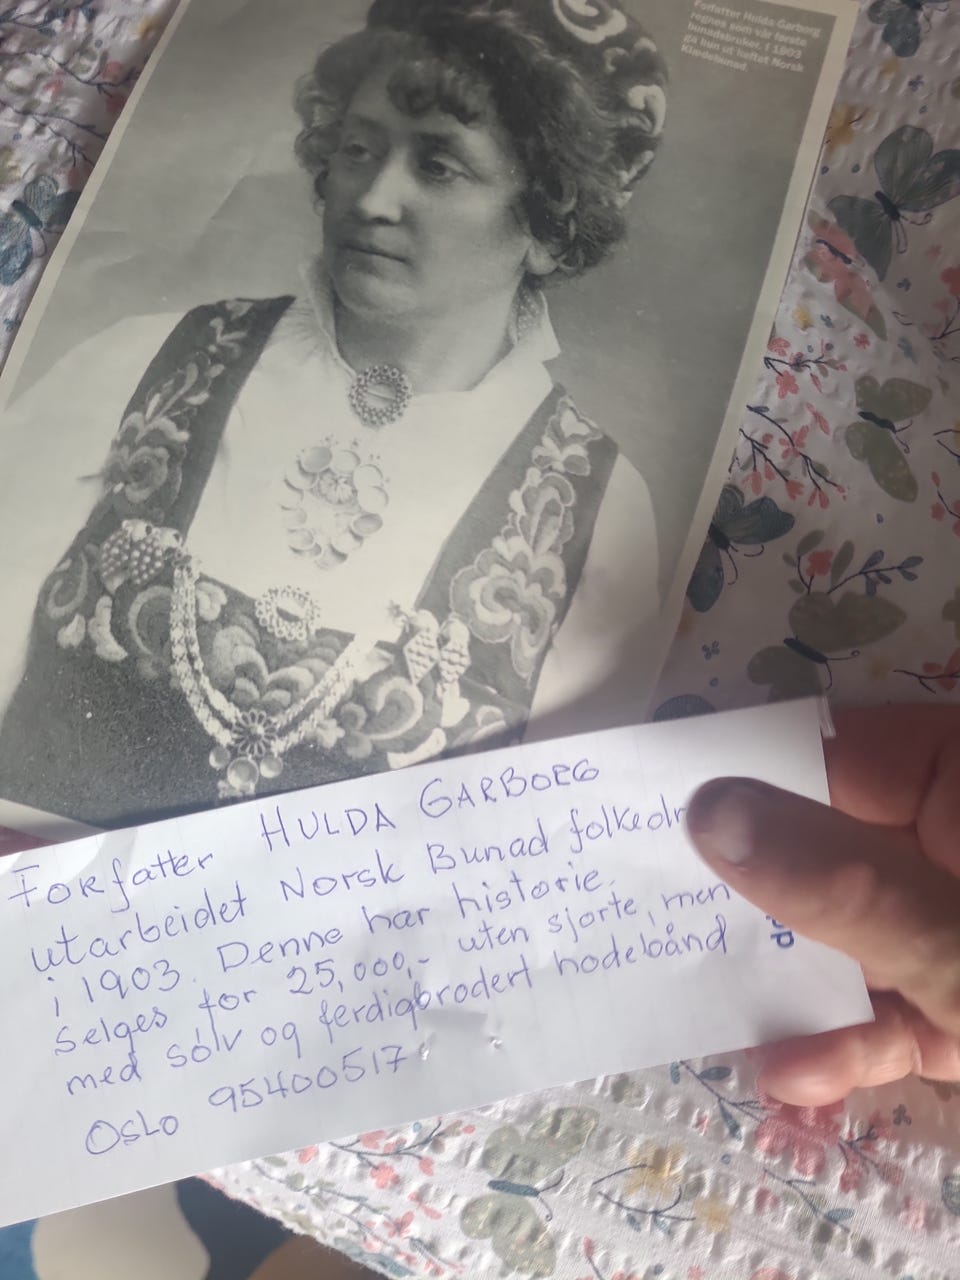 Forfatter Hulda Garborg
regnes som vår første
bunadsbruker. I 1903
ga hun ut heftet Norsk
Klædebunad.
Forfatter HULDA GARBORG
utarbeidet Norsk Bunad folkedr
i 1903. Denne har historie.
Selges for 25,000,- uten sjorte, men
med sølv og ferdigbrodert hodebånd
Oslo 95400517